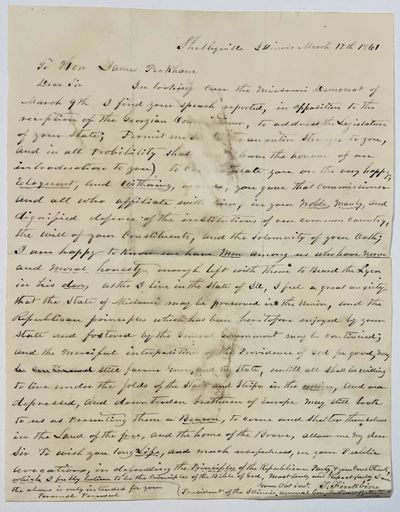 Shelbyville Illinois March 12th 1861
To Hon James Peckham
Dear Sir In looking over the Missouri Democrat of
March 9th I find your Speach reported, in opposition to the
reception of the Georgian, to address the Legislature
of your State; Permit me an entire Stranger to you,
and in all probibility have the honour of an
introduction to you) to you on the very happy,
Eloquent, and Withering, you gave that Commissioner
and all who affiliate with him, in your Noble, Manly, and
dignified defence of the institutions of our common Country,
the will of your Constituents, and the Solemnity of your Oath;
I am happy to know we have Men among us who have Nerve
and Moral honesty enough left with them to Beard the Lyon
in his den, altho I live in the State of Ill, I feel a great anxiety
that the State of Missouri may be preserved in the Union, and the
Republican principles which has been heretofore enjoyed by your
State and fostered by the General Government may be continued;
and the Merciful interposition of the Providence of God for good, may
still favour your, and my State, untill all Shall be willing
to live under the folds of the Stars and Strips in the union, And our
depressed, and down troden bretheren of Europe may Still look
to us as Presenting them a Beacon, to come and Shelter themselves
in the Land of the free, and the home of the Brave, allow me my dear
Sir To wish you long Life, and much usefulness, in your Publick
Avocations, in defending the Principles of the Republican Party, & your Constituents,
which I fully believe to be the Principles of the Bible of God, Most truly and Respectfully I am
Your Obt Servt
the above is only intended for your
Personal Perusal
President of the Illinois, annual